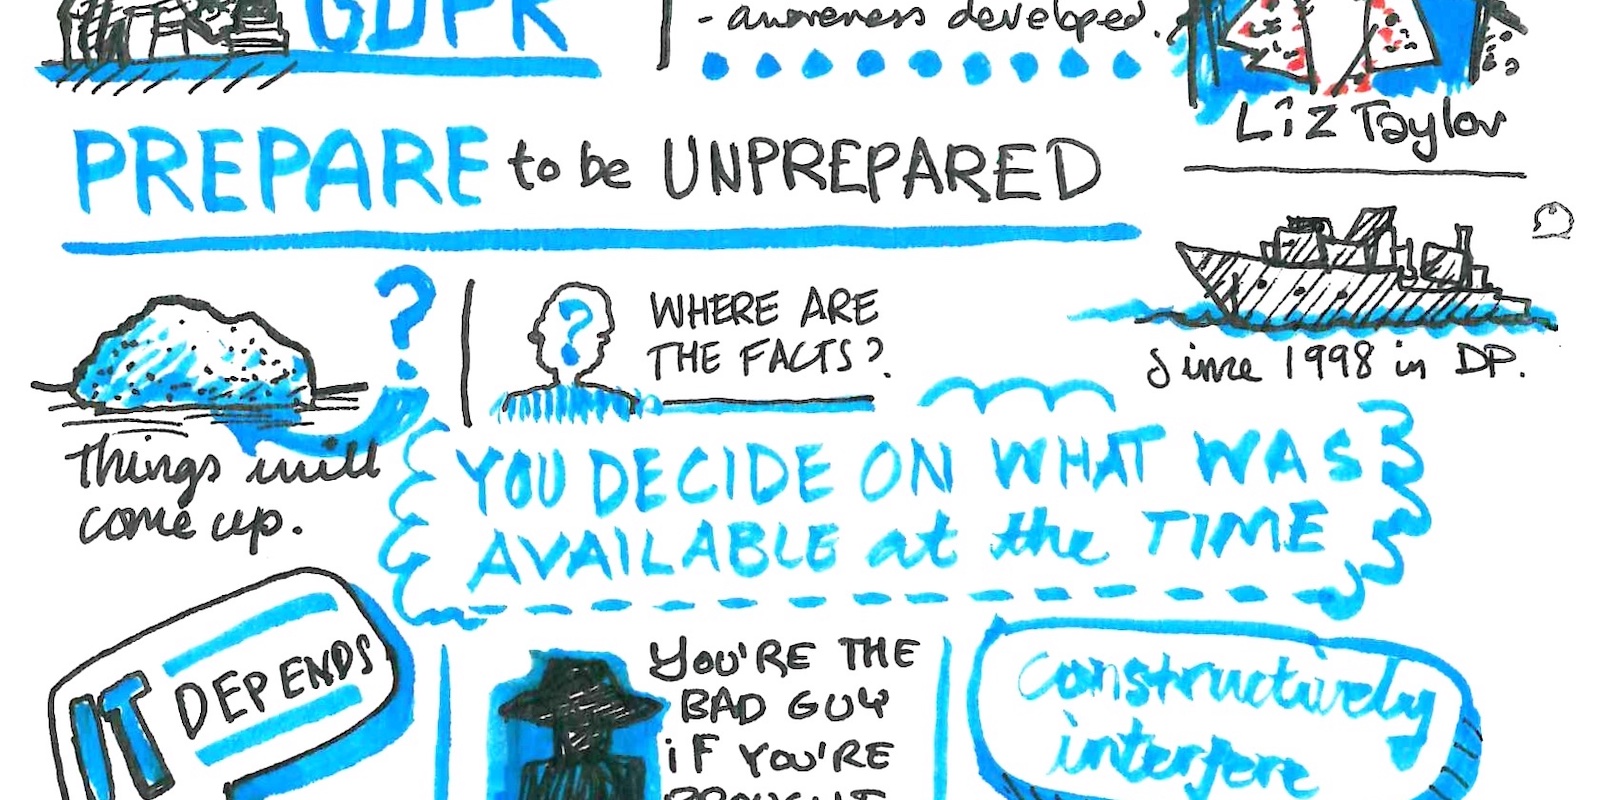 GDPR
- awareness developed.
Liz Taylor
PREPARE to be UNPREPARED
since 1998 in DP.
?
?
WHERE ARE
THE FACTS?
things will
come up.
YOU DECIDE ON WHAT WAS
AVAILABLE at the TIME
IT DEPENDS
YOU'RE THE
BAD GUY
iF YOU'RE
BROUGHT
constructively
interfere